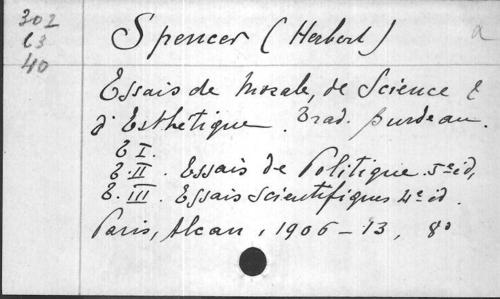 302
C3
40
Spencer (Herbert)
a
Essais de Morale, de Science &
d'Esthétique. Trad. Burdeau.
T I.
T. II. Essais de Politique. 5e éd,
T. III. Essais Scientifiques 4e éd.
Paris, Alcan, 1906-13, 8°